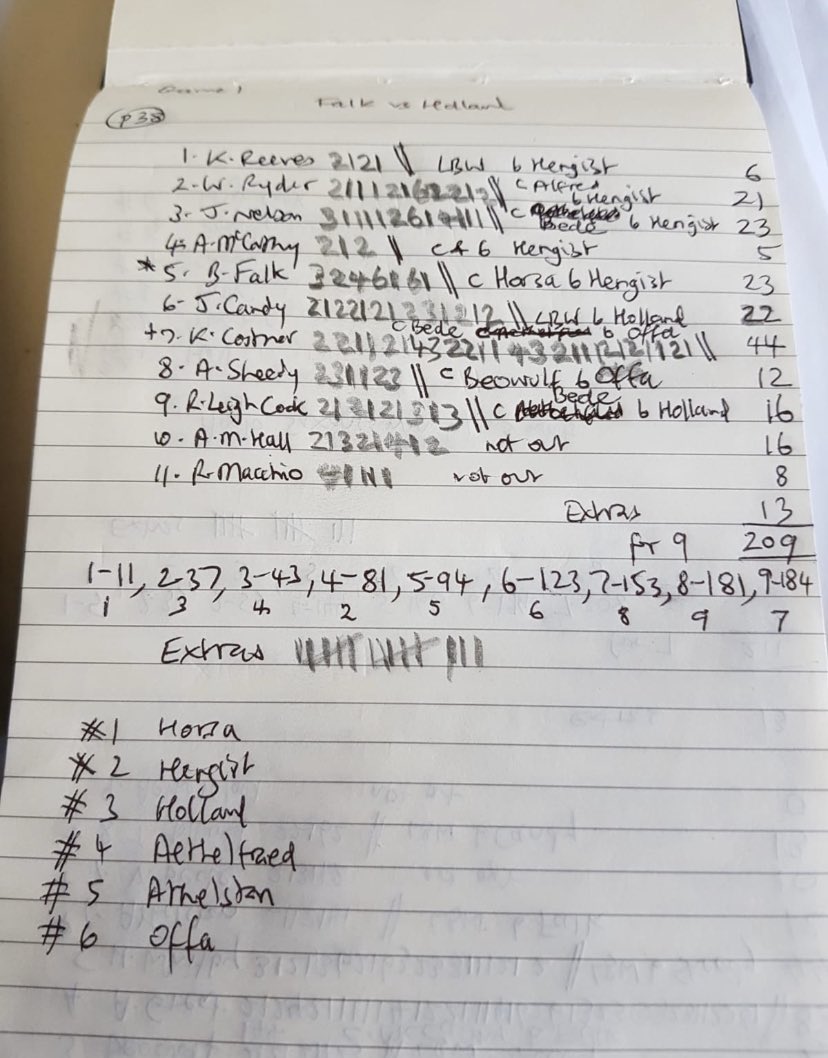 Game 1
Falk vs Holland
p38
1. K. Reeves 2121 \\ LBW b Hengist 6
2. W. Ryder \\ c Alfred b Hengist 21
3. J. Nelson \\ c Bede b Hengist 23
4. A. McCarthy 212 \\ c & b Hengist 5
*5. B. Falk \\ c Horsa b Hengist 23
6. J. Candy 2122121231212 \\ LBW b Holland 22
+7. K. Costner \\ c Bede b Offa 44
8. A. Sheedy 231123 \\ c Beowulf b Offa 12
9. R. Leigh Cook \\ c Bede b Holland 16
10. A. M. Hall 21321412 not out 16
11. R. Macchio 41111 not out 8
Extras 13
for 9 209
1-11, 2-37, 3-43, 4-81, 5-94, 6-123, 7-153, 8-181, 9-184
1 3 4 2 5 6 8 9 7
Extras
#1 Horsa
#2 Hengist
#3 Holland
#4 Aethelfraed
#5 Athelstan
#6 Offa